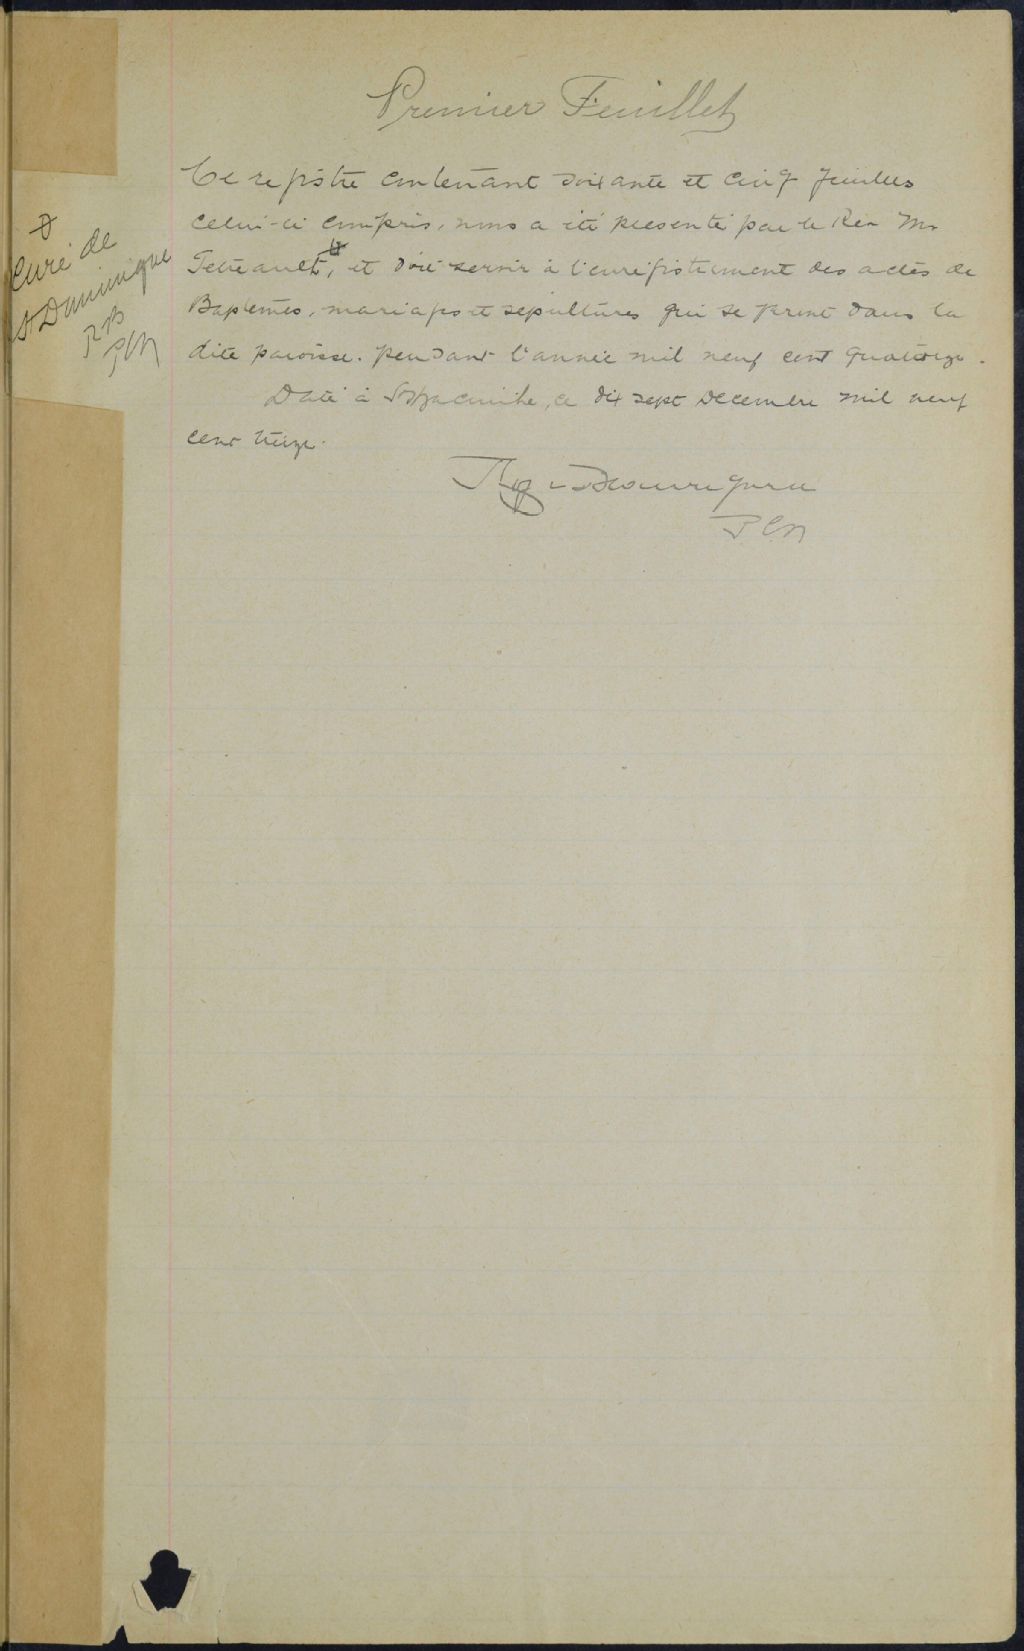 Premier Feuillet
Ce registre contenant soixante et cinq feuillets
celui-ci compris, nous a été présenté par le Rev Mr
Tetreault, et doit servir à l'enregistrement des actes de
Baptêmes, mariages et sépultures qui se feront dans la
dite paroisse. pendant l'année mil neuf cent quatorze.
Daté à St Hyacinthe, ce dix sept Decembre mil neuf
cent treize.
Beauregard
P C S
Curé de
St Dominique
R B
P C S